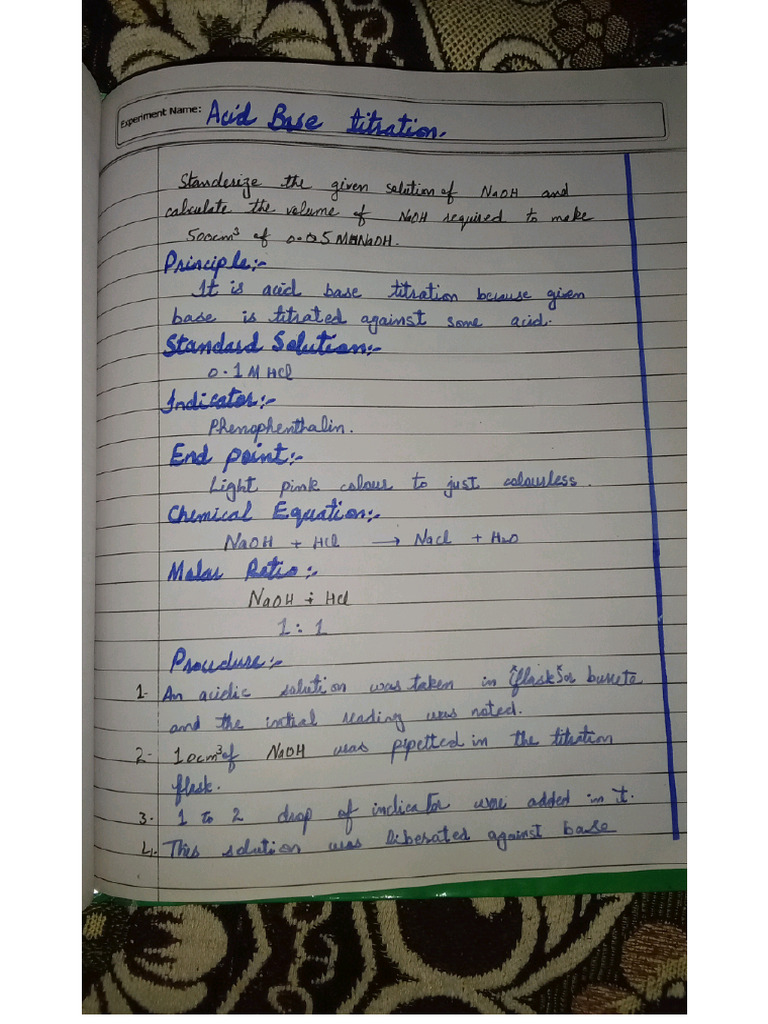 Experiment Name: Acid Base titration.
Standerize the given solution of NaOH and
calculate the volume of NaOH required to make
500cm³ of 0.05 M NaOH.
Principle:-
It is acid base titration because given
base is titrated against some acid.
Standard Solution:-
0.1 M HCl
Indicator:-
Phenophenthalin.
End point:-
Light pink colour to just colourless.
Chemical Equation:-
NaOH + HCl → NaCl + H₂O
Molar Ratio:-
NaOH : HCl
1 : 1
Procedure:-
1- An acidic solution was taken in "flask" or burrete
and the initial reading was noted.
2- 10cm³ of NaOH was pipetted in the titration
flask.
3. 1 to 2 drop of indicator were added in it.
4. This solution was liberated against base